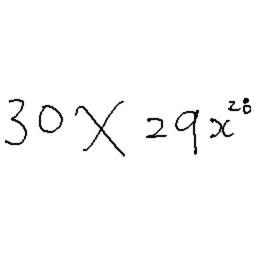 30 X 29x²⁸